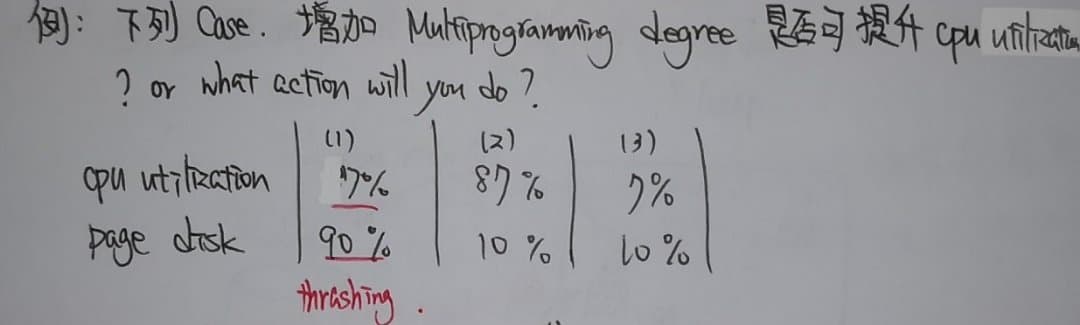 例: 下列 Case. 增加 Multiprogramming degree 是否可提升 cpu utilization
? or what action will you do?
(1) (2) (3)
cpu utilization 17% 87% 7%
page disk 90% 10% 10%
thrashing.